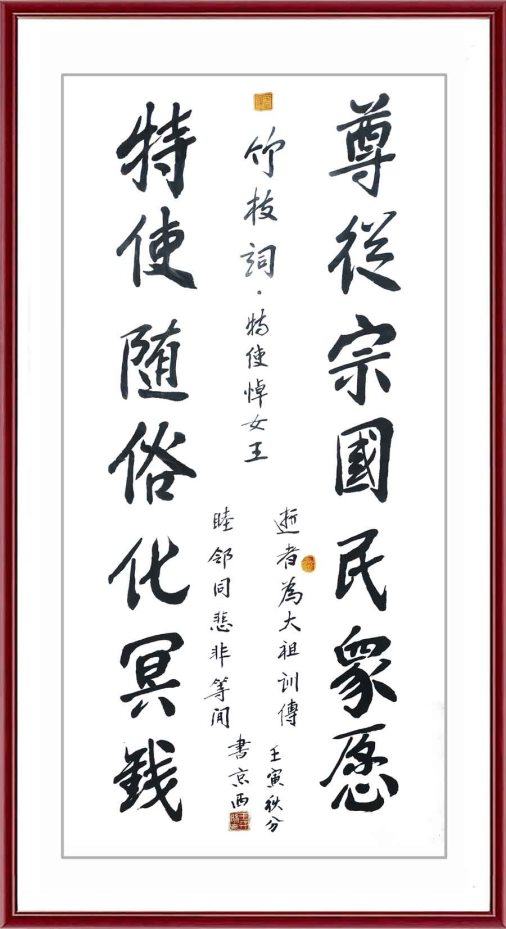 尊從宗國民眾愿
竹枝詞·特使悼女王
逝者為大祖训傳
睦邻同悲非等闲
壬寅秋分
書京西
特使随俗化冥钱